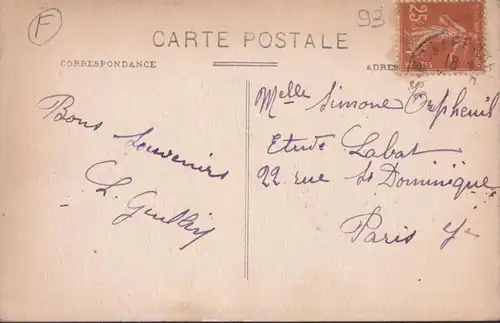 F
93
CARTE POSTALE
CORRESPONDANCE
ADRES
25
Bons Souvenirs
Melle Simone Orpheuil
Etude Labat
22 rue St Dominique
Paris 7e